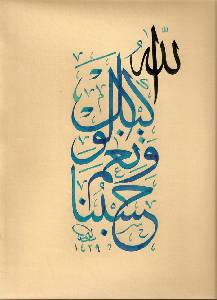 حسبنا الله ونعم الوكيل
١٤٢٩